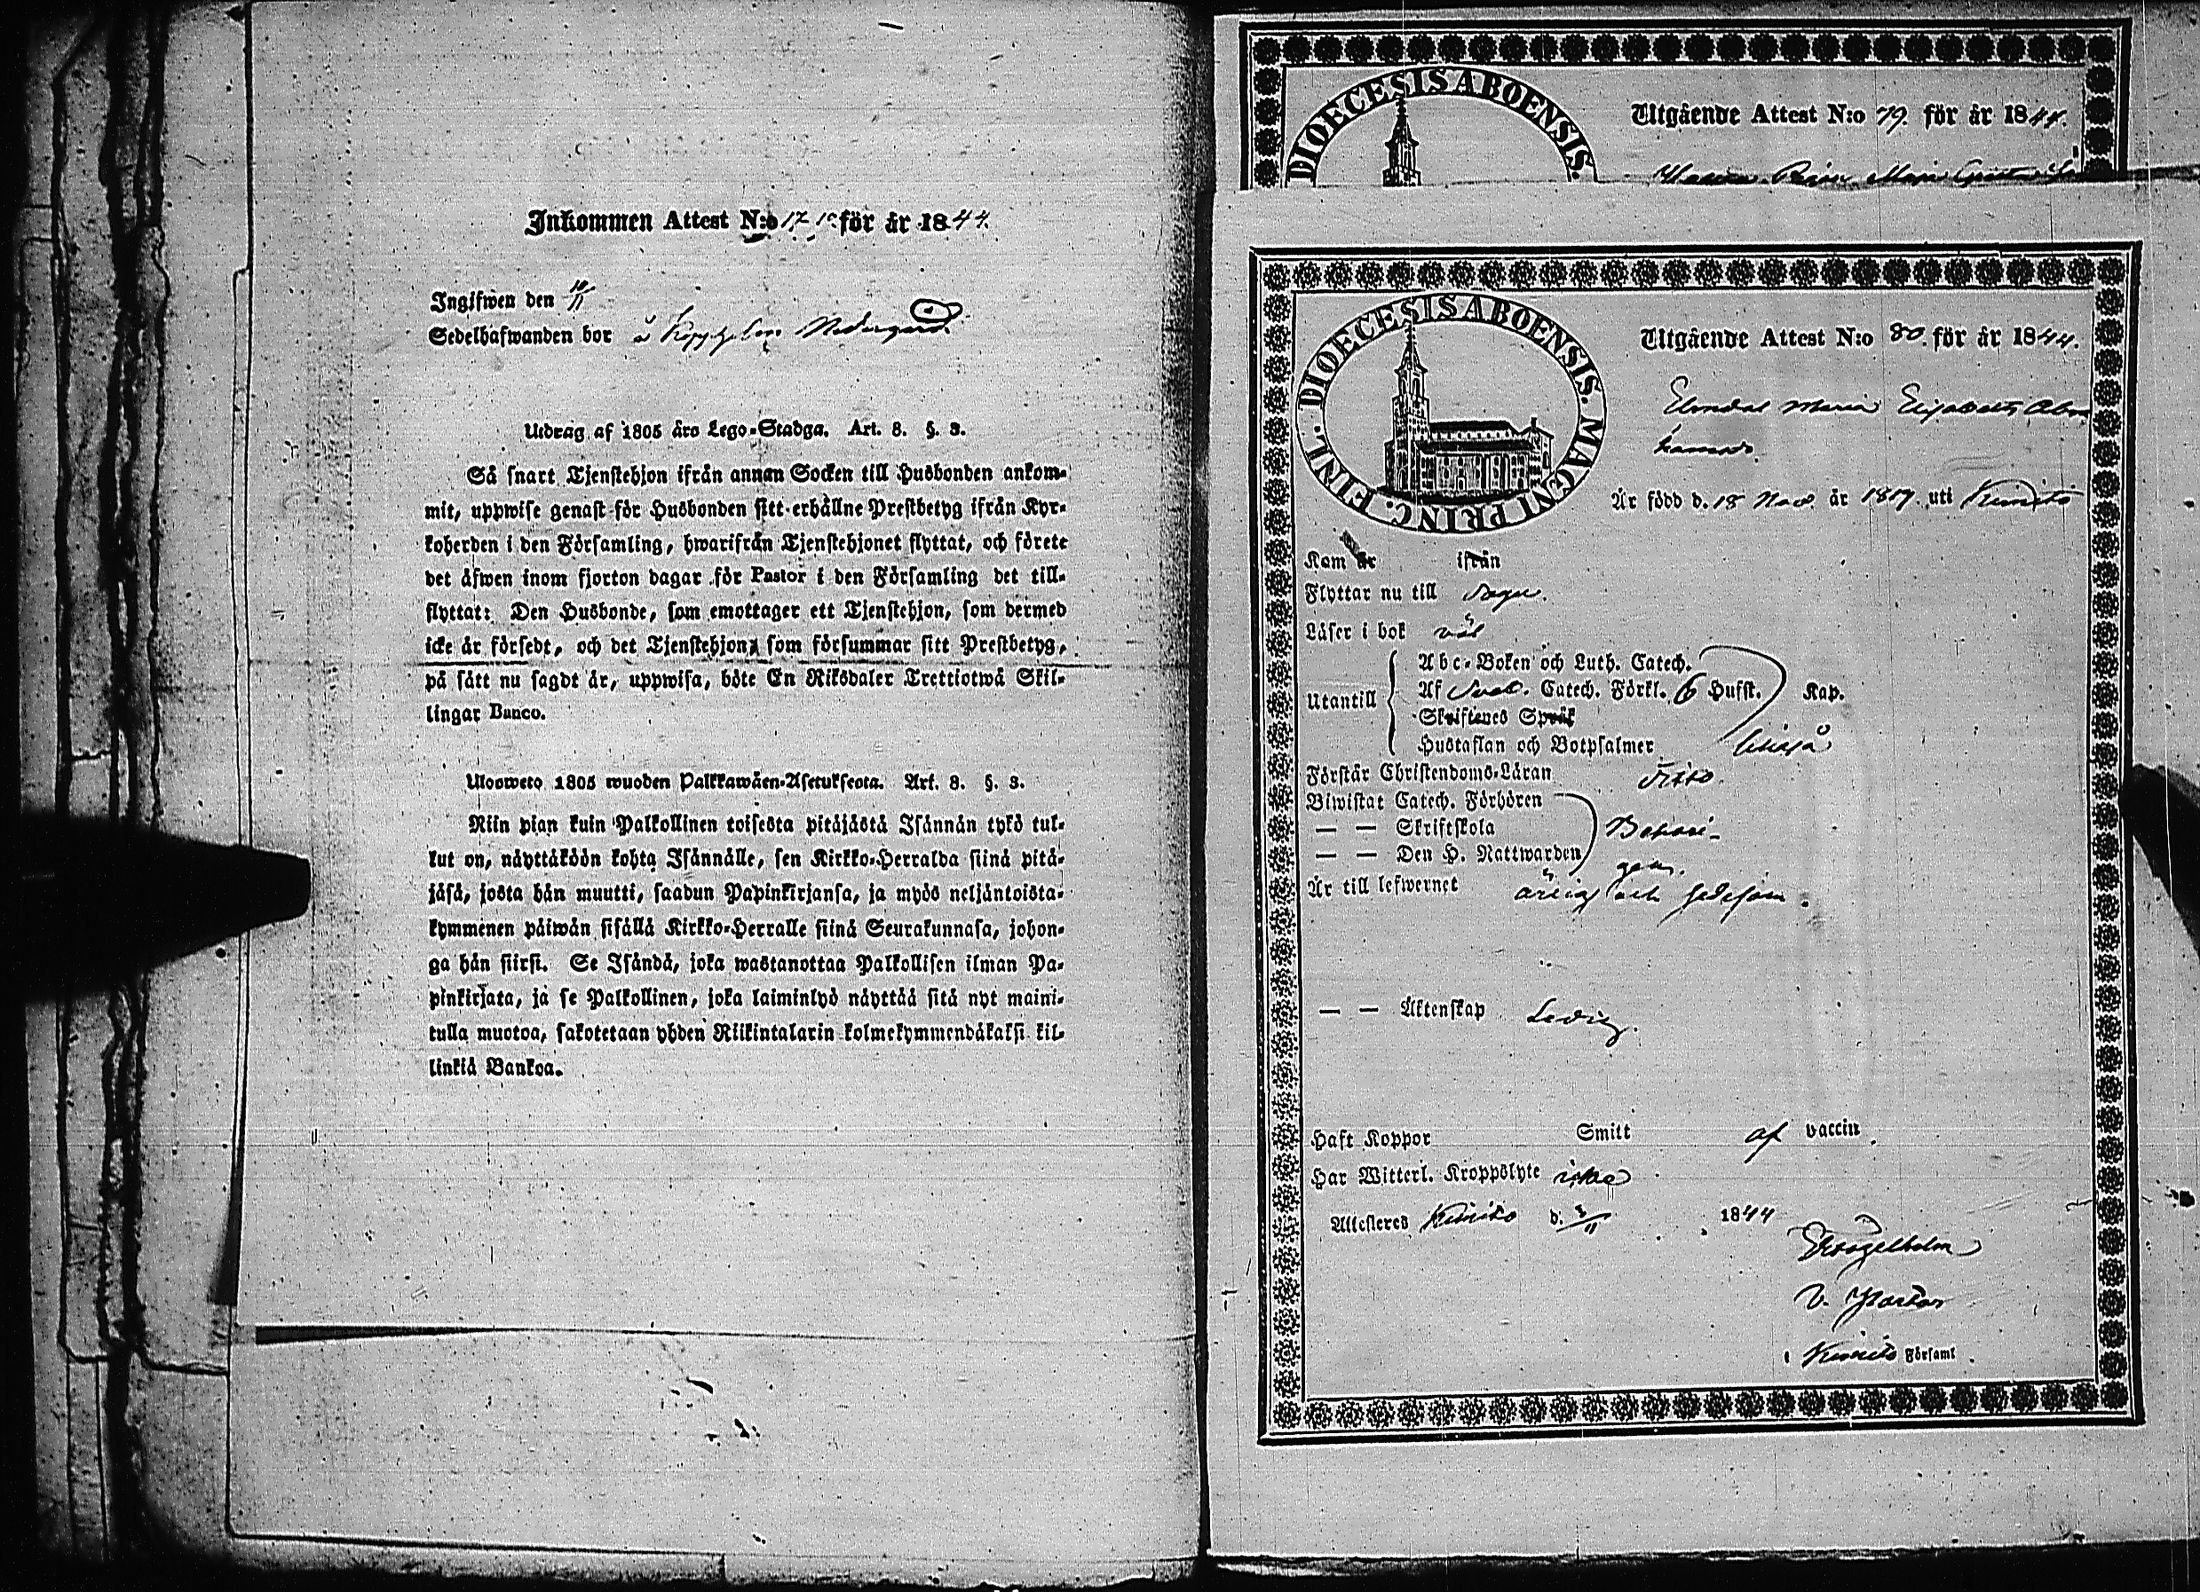 Inkommen Attest N:o 17 för år 1844.
Ingifwen den 10/11
Sedelhafwanden bor å Nedergård
Utdrag af 1805 års Lego-Stadga. Art. 8. §. 3.
Så snart Tjenstehjon ifrån annan Socken till Husbonden ankom-
mit, uppwise genast för Husbonden sitt erhållne Prestbetyg ifrån Kyr-
koherden i den Församling, hwarifrån Tjenstehjonet flyttat, och förete
det äfwen inom fjorton dagar för Pastor i den Församling det till-
flyttat: Den Husbonde, som emottager ett Tjenstehjon, som dermed
icke är försedt, och det Tjenstehjon, som försummar sitt Prestbetyg,
på sätt nu sagdt är, uppwisa, böte En Riksdaler Trettiotwå Skil-
lingar Banco.
Ulosweto 1805 wuoden Palkkawäen-Asetuksesta. Art. 8. §. 3.
Niin pian kuin Palkollinen toisesta pitäjästä Isännän tykö tul-
lut on, näyttäköön kohta Isännälle, sen Kirkko-Herralda siinä pitä-
jäsä, josta hän muutti, saadun Papinkirjansa, ja myös neljäntoista-
kymmenen päiwän sisällä Kirkko-Herralle siinä Seurakunnasa, johon-
ga hän siirsi. Se Isändä, joka wastanottaa Palkollisen ilman Pa-
pinkirjata, ja se Palkollinen, joka laiminlyö näyttää sitä nyt maini-
tulla muotoa, sakotetaan yhden Riikintalarin kolmekymmendäkaksi kil-
linkiä Bankoa.
DIOECESIS ABOENSIS.
Utgående Attest N:o 79. för år 1844.
DIOECESIS ABOENSIS. MAGNI PRINC. FINL.
Utgående Attest N:o 80. för år 1844.
Maria Elisabeth
Är född d. 18 Nov. år 1819. uti Kimito
Kom år ifrån
Flyttar nu till Sagu.
Läser i bok väl
Utantill
Abc-Boken och Luth. Catech.
Af Sveb. Catech. Förkl. 6 Hufst. Kap.
Skriftenes Språk
Hustaflan och Botpsalmer likaså
Förstår Christendoms-Läran ditto.
Biwistat Catech. Förhören
— — Skriftskola
— — Den H. Nattwarden
Är till lefwernet ärlig och
— — Äktenskap Ledig.
Haft Koppor Smitt af vaccin.
Har Witterl. Kroppslyte icke
Attesteras Kimito d. 3/11 1844
V. Pastor
i Kimito Församl.